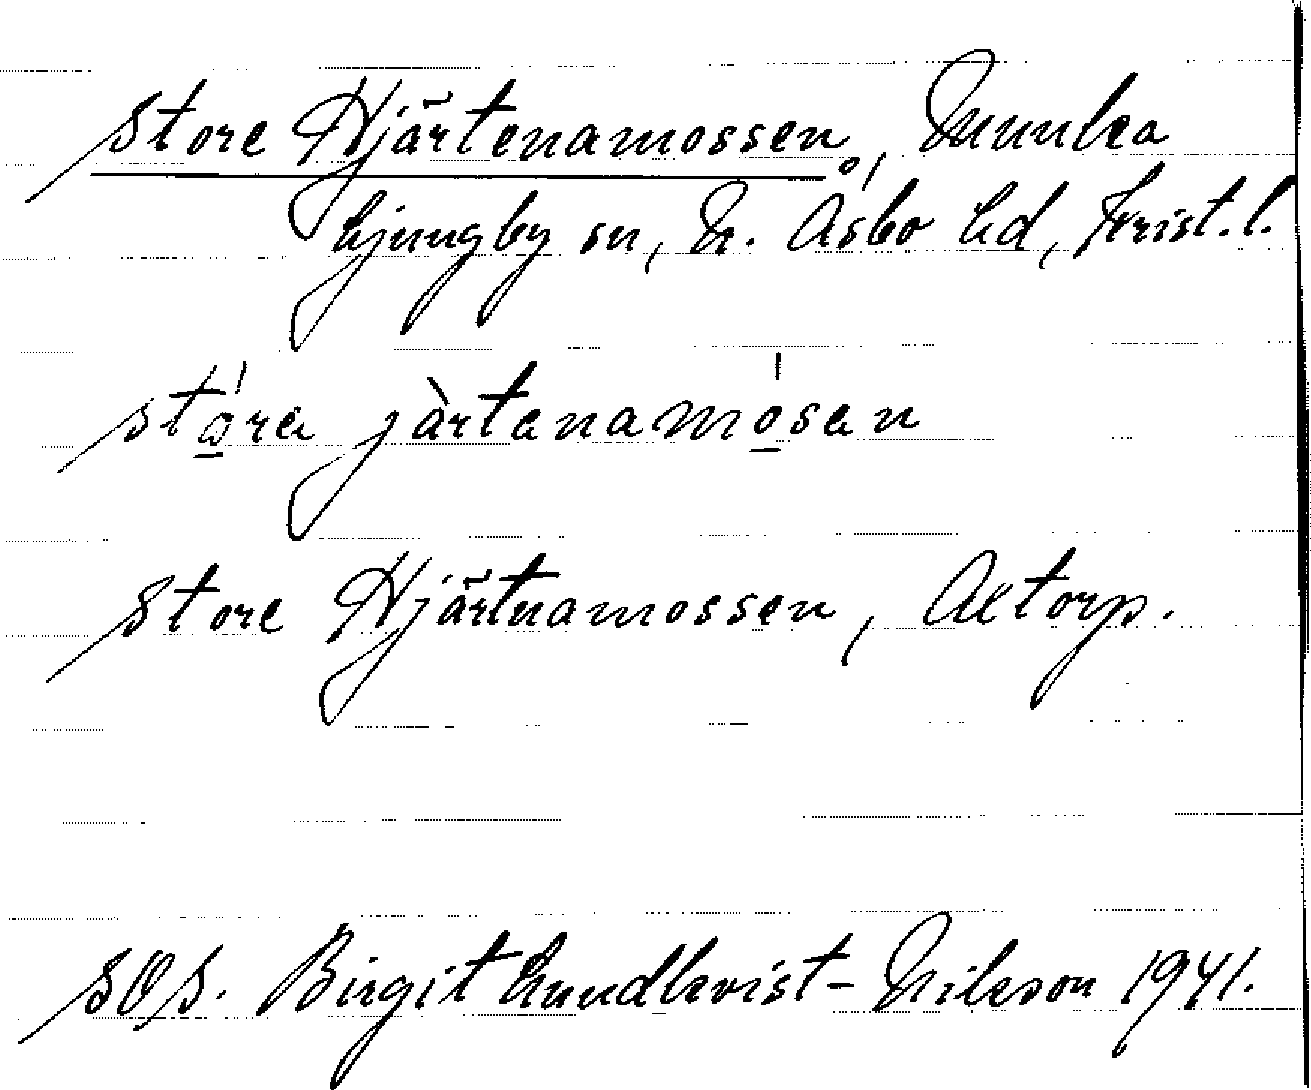 Store Hjärtenamossen, Munka
Ljungby sn, N. Åsbo hd, Krist. l.
stǫ́ra jàrtanamǫ́san
Store Hjärtnamossen, Aetorp.
SOS. Birgit Lundkvist-Nilsson 1941.